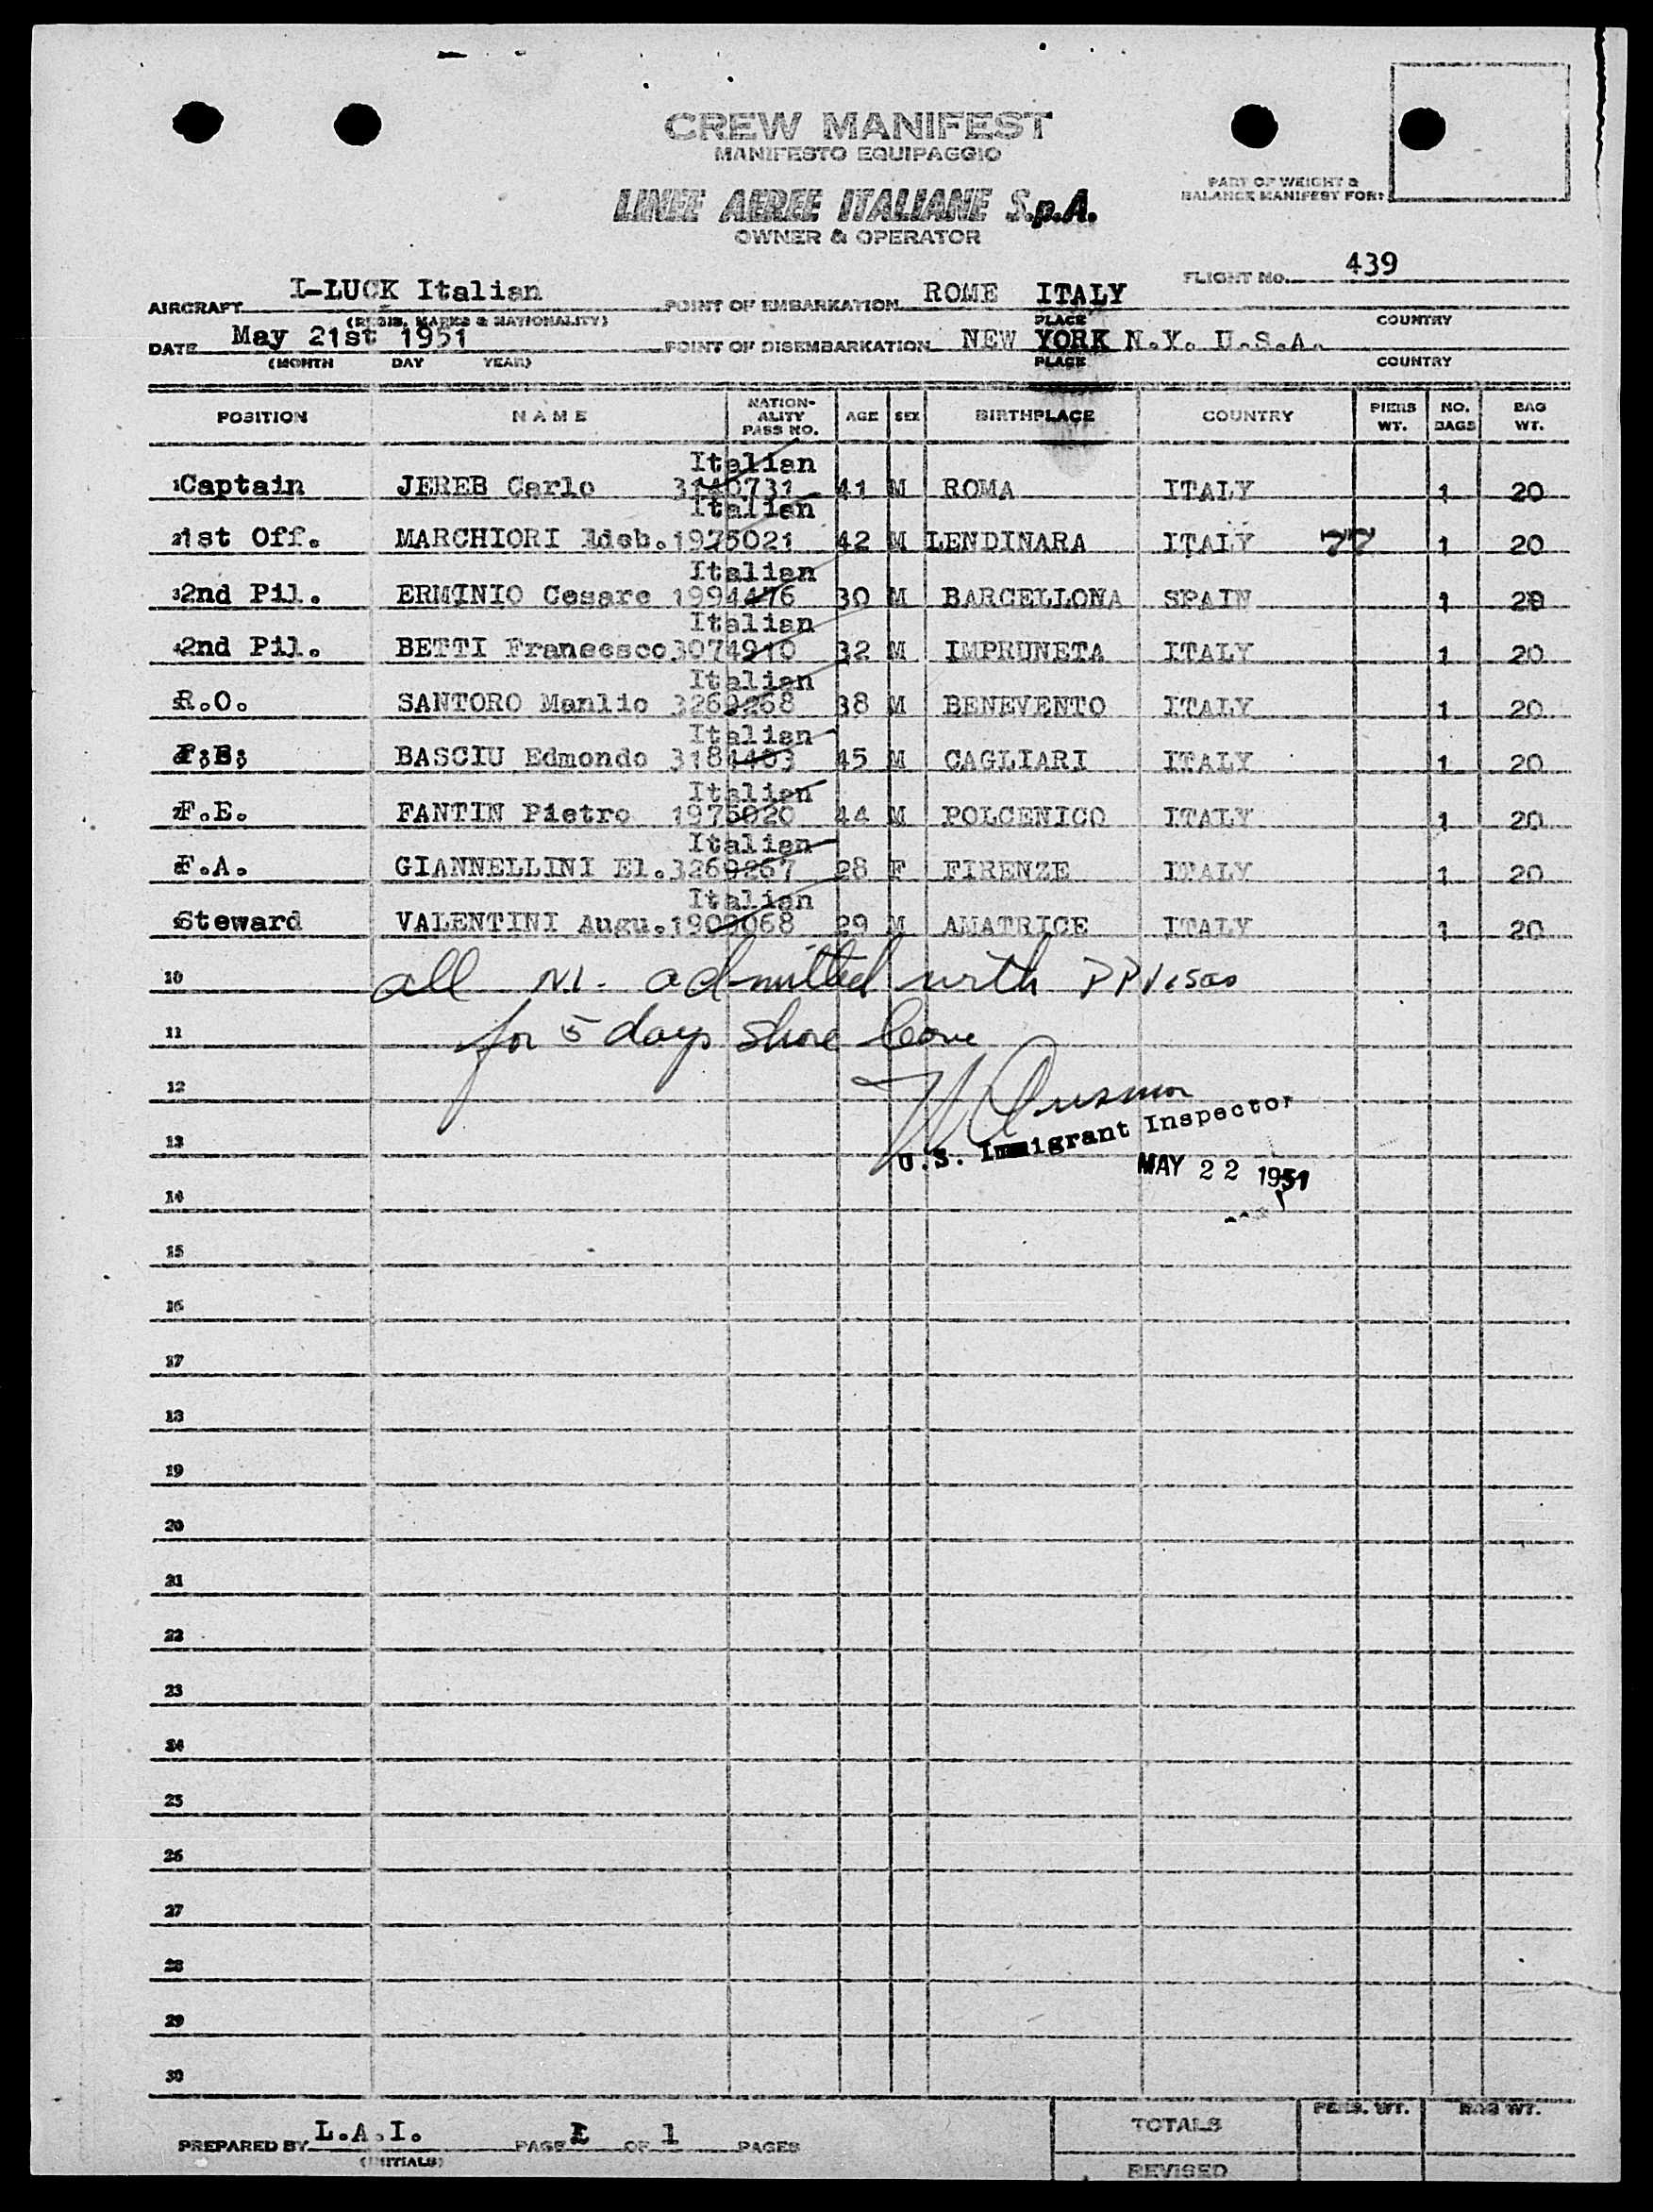 CREW MANIFEST
MANIFESTO EQUIPAGGIO
LINEE AEREE ITALIANE S.p.A.
OWNER & OPERATOR
PART OF WEIGHT &
BALANCE MANIFEST FOR:
FLIGHT No. 439
AIRCRAFT I-LUCK Italian POINT OF EMBARKATION ROME ITALY
(REGIS. MARKS & NATIONALITY) PLACE COUNTRY
DATE May 21st 1951 POINT OF DISEMBARKATION NEW YORK N.Y. U.S.A.
(MONTH DAY YEAR) PLACE COUNTRY
POSITION NAME NATION-ALITY PASS NO. AGE SEX BIRTHPLACE COUNTRY PIERS WT. NO. BAGS BAG WT.
Italian
1 Captain JEREB Carlo 3140731 41 M ROMA ITALY 1 20
Italian
2 1st Off. MARCHIORI 1975021 42 M LENDINARA ITALY 77 1 20
Italian
3 2nd Pil. ERMINIO Cesare 1994476 30 M BARCELLONA SPAIN 1 20
Italian
4 2nd Pil. BETTI Francesco 3074910 32 M IMPRUNETA ITALY 1 20
Italian
5 R.O. SANTORO Manlio 3269268 38 M BENEVENTO ITALY 1 20
Italian
6 F;E; BASCIU Edmondo 3184403 45 M CAGLIARI ITALY 1 20
Italian
7 F.E. FANTIN Pietro 1975020 44 M POLCENICO ITALY 1 20
Italian
8 F.A. GIANNELLINI El. 3269267 28 F FIRENZE ITALY 1 20
Italian
9 Steward VALENTINI Augu. 1900068 29 M AMATRICE ITALY 1 20
10 all N.I. admitted with PPVisas
11 for 5 days shore leave
12
U.S. Immigrant Inspector
13
MAY 22 1951
14
15
16
17
18
19
20
21
22
23
24
25
26
27
28
29
30
PREPARED BY L.A.I. PAGE 1 OF 1 PAGES
(INITIALS)
TOTALS PERS. WT. BAG WT.
REVISED